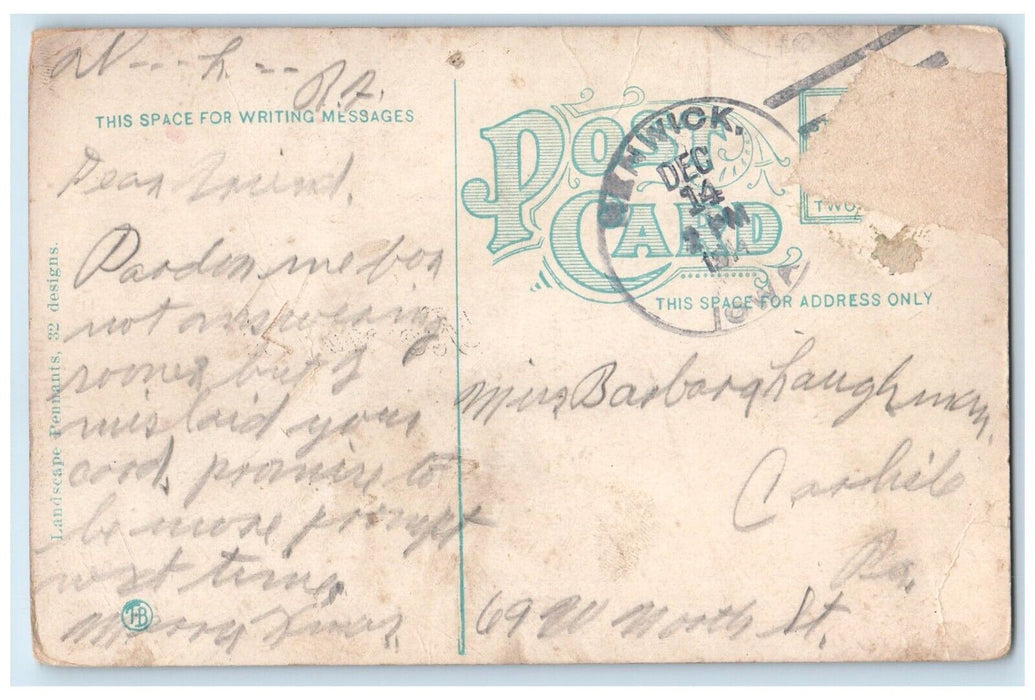 R.A.
THIS SPACE FOR WRITING MESSAGES
Dear Friend,
Pardon me for
not answering
sooner but I
mislaid your
card. promise to
be more prompt
next time.
Merry Xmas.
Landscape Pennants, 32 designs.
TB
POST
CARD
RENWICK,
DEC
14
PM
IOWA
TWO
THIS SPACE FOR ADDRESS ONLY
Miss Barbara Baughman,
Carlisle
Pa.
69 W North St.